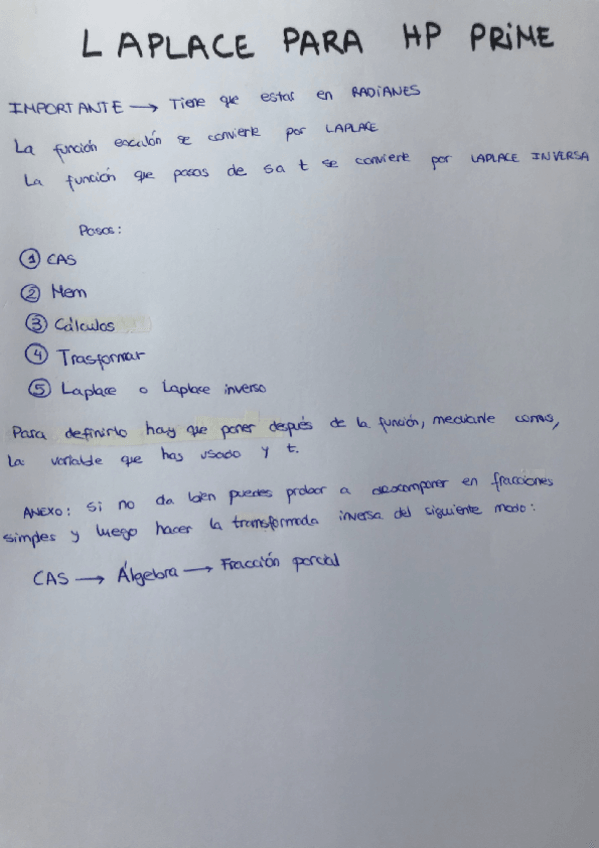 LAPLACE PARA HP PRIME
IMPORTANTE → Tiene que estar en RADIANES
La función escalón se convierte por LAPLACE
La función que pasas de s a t se convierte por LAPLACE INVERSA
Pasos:
① CAS
② Mem
③ Cálculos
④ Trasformar
⑤ Laplace o Laplace inverso
Para definirlo hay que poner después de la función, mediante comas,
la variable que has usado y t.
ANEXO: si no da bien puedes probar a descomponer en fracciones
simples y luego hacer la transformada inversa del siguiente modo:
CAS → Álgebra → Fracción parcial